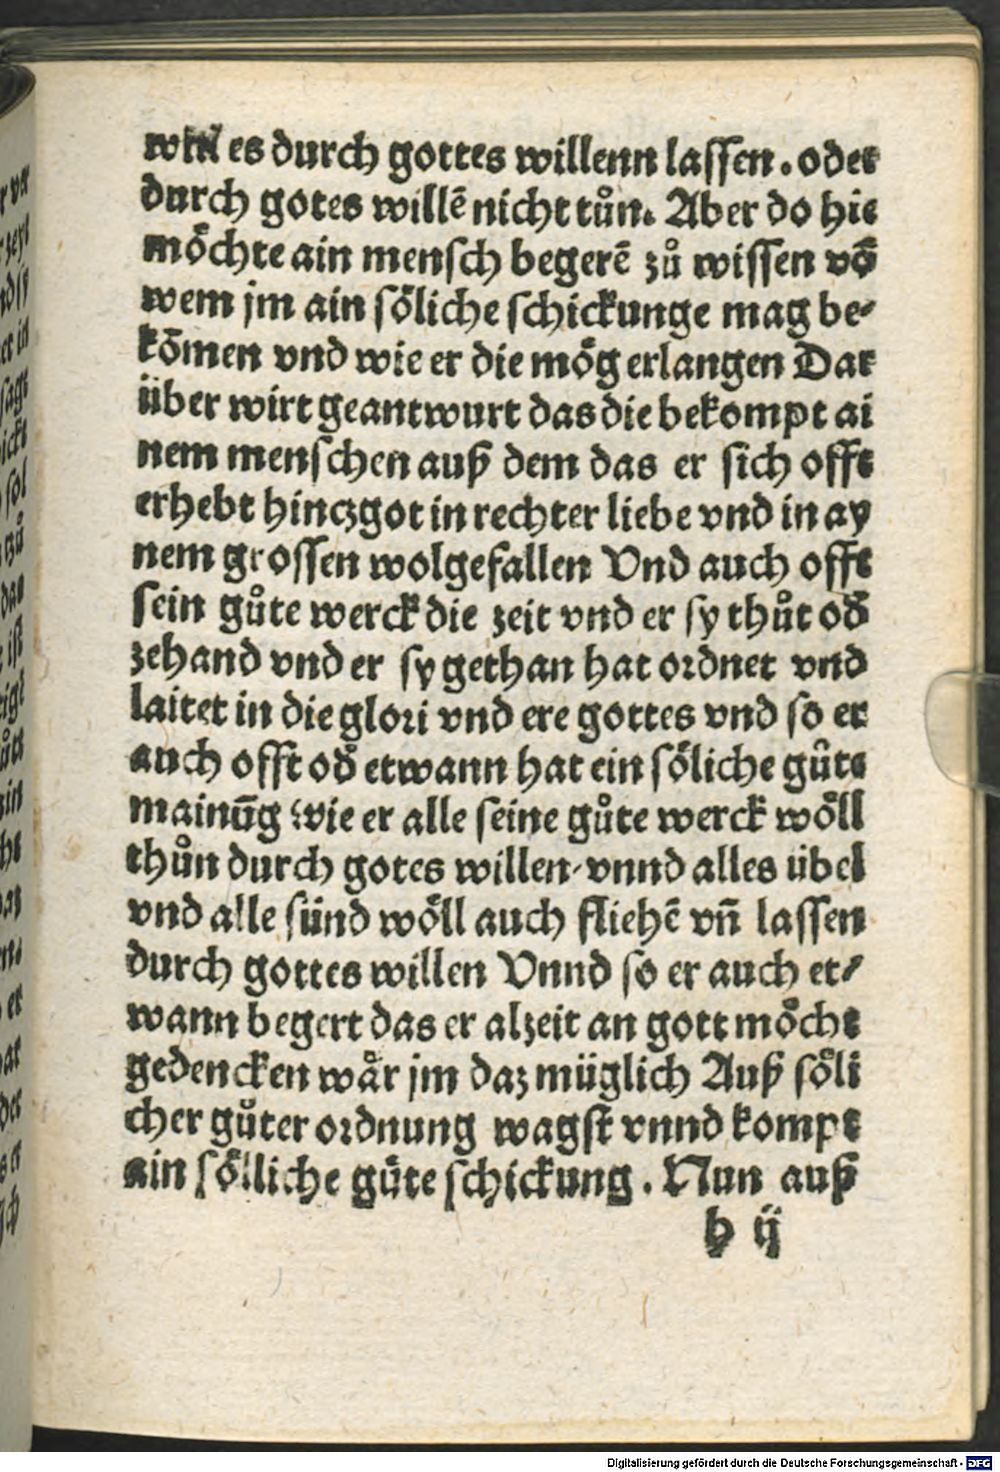 will es durch gottes willenn lassen. oder
durch gotes willē nicht tůn. Aber do hie
möchte ain mensch begerē zů wissen vō
wem jm ain söliche schickunge mag be-
kōmen vnd wie er die mög erlangen Dar
über wirt geantwurt das die bekompt ai
nem menschen auß dem das er sich offt
erhebt hinczgot in rechter liebe vnd in ay
nem grossen wolgefallen Vnd auch offt
sein gůte werck die zeit vnd er sy thůt od̄
zehand vnd er sy gethan hat ordnet vnd
laitet in die glori vnd ere gottes vnd so er
auch offt od̄ etwann hat ein söliche gůte
mainūg wie er alle seine gůte werck wöll
thůn durch gotes willen vnnd alles übel
vnd alle sünd wöll auch fliehē vn̄ lassen
durch gottes willen Vnnd so er auch et-
wann begert das er alzeit an gott möcht
gedencken wår jm daz müglich Auß söli
cher gůter ordnung wagst vnnd kompt
ain sölliche gůte schickung. Nun auß
b ij
Digitalisierung gefördert durch die Deutsche Forschungsgemeinschaft - DFG